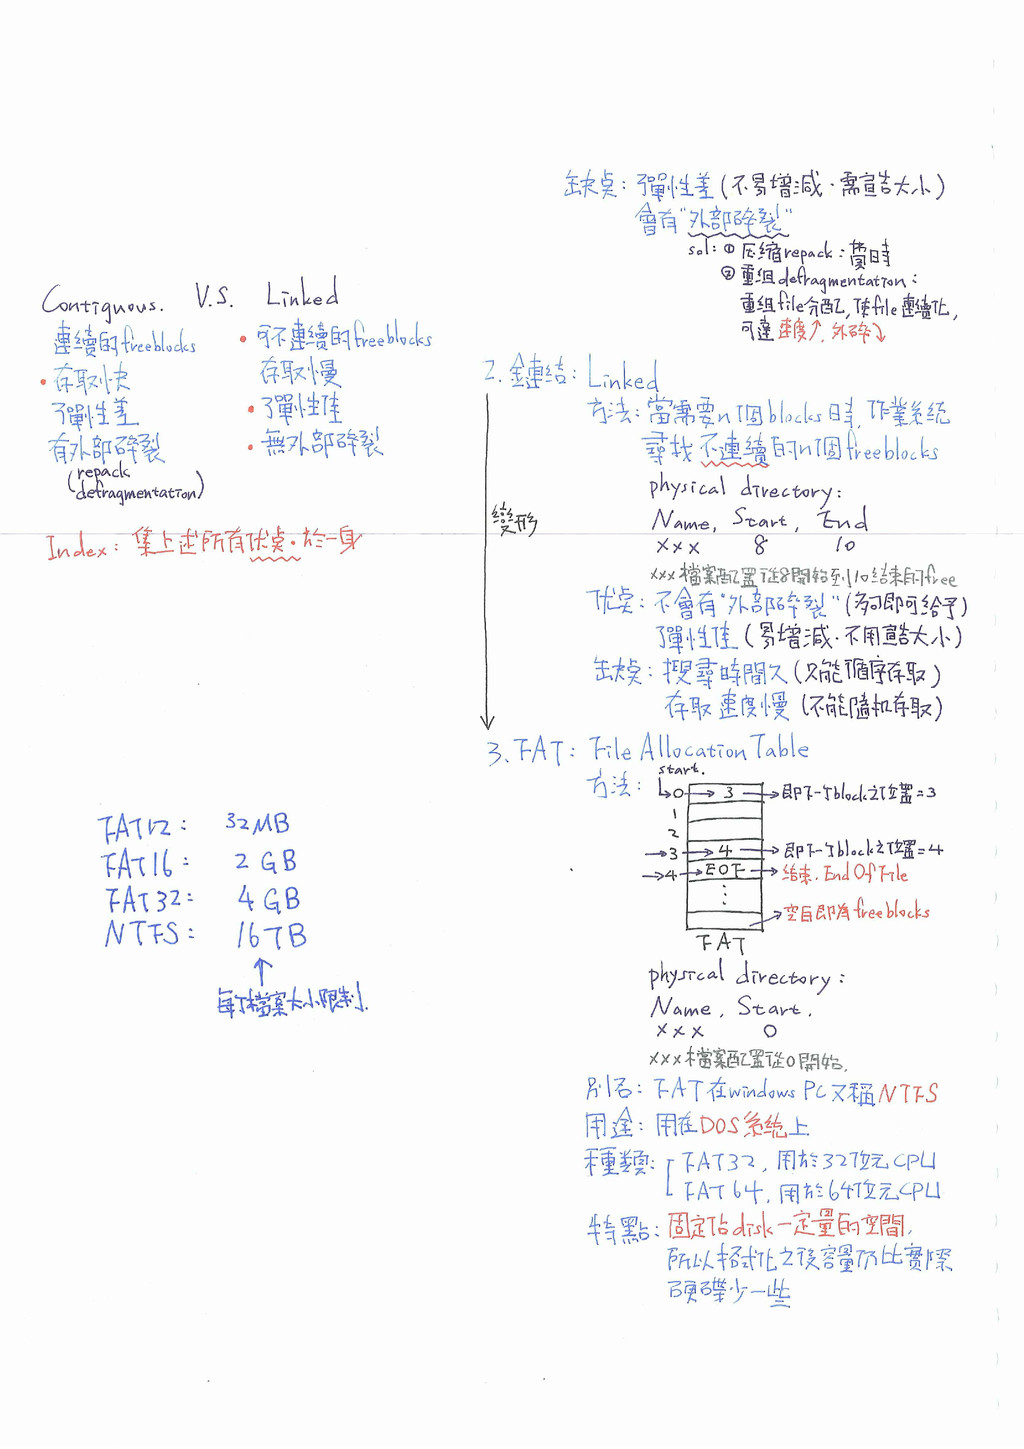 缺点：彈性差（不易增減．需宣告大小）
會有"外部碎裂"
sol：① 压缩repack：費時
② 重组defragmentation：
重组file分配，使file連續化，
可達 速度↑，外碎↓
Contiguous. V.S. Linked
連續的freeblocks
・存取快
彈性差
有外部碎裂
(repack
defragmentation)
・可不連續的freeblocks
存取慢
・彈性佳
・無外部碎裂
Index：集上述所有优点．於一身
2. 鏈結：Linked
方法：當需要n個blocks時，作業系統
尋找不連續的n個freeblocks
physical directory：
Name, Start, End
××× 8 10
×××檔案配置從8開始到10結束的free
优点：不會有"外部碎裂"（夠即可給予）
彈性佳（易增減．不用宣告大小）
缺点：搜尋時間久（只能循序存取）
存取速度慢（不能隨机存取）
變形
3. FAT：File Allocation Table
方法：
start.
0 → 3 → 即下一个block之位置=3
1
2
→ 3 → 4 → 即下一个block之位置=4
→ 4 → EOF → 结束．End Of File
⋮
→空白即為freeblocks
FAT
physical directory：
Name, Start.
××× 0
×××檔案配置從0開始.
別名：FAT在windows PC又稱NTFS
用途：用在DOS系统上
種類：FAT32，用於32位元CPU
FAT64，用於64位元CPU
特點：固定佔disk一定量的空間，
所以格式化之後容量仍比實際
硬碟少一些
FAT12： 32MB
FAT16： 2GB
FAT32： 4GB
NTFS： 16TB
↑
每个檔案大小限制.